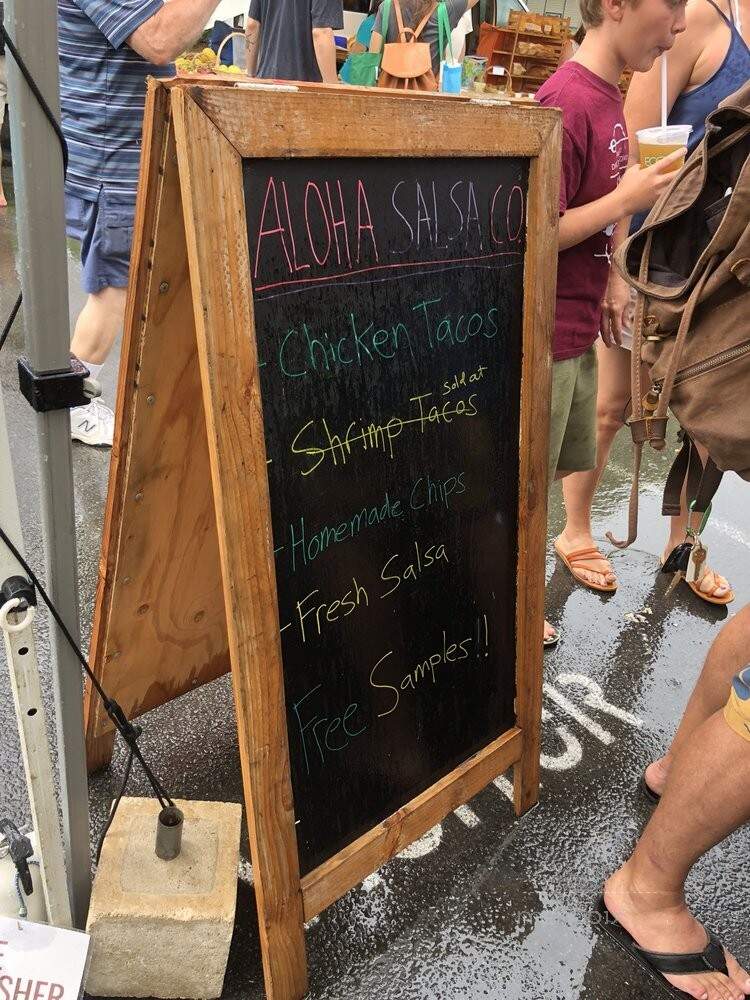 ALOHA SALSA CO.
- Chicken Tacos
sold at
- Shrimp Tacos
- Homemade Chips
- Fresh Salsa
Free Samples!!
SHER
N